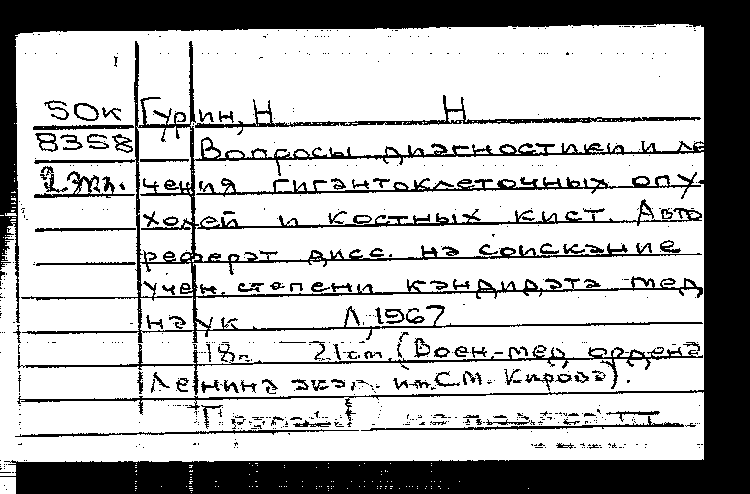 50к Гурин, Н Н
8358 Вопросы диагностики и ле
2 экз. чения гигантоклеточных опу-
холей и костных кист. Авто
реферат дисс. на соискание
учен. степени кандидата мед
наук. Л, 1967
18с. 21см. (Воен.-мед ордена
Ленина акад. им. С.М. Кирова).